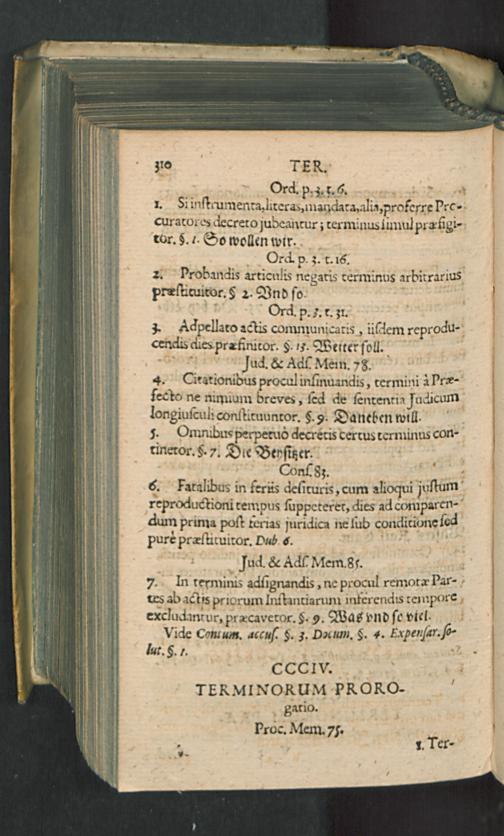 310 TER.
Ord. p. 3. t. 6.
1. Si inſtrumenta, literas, mandata, alia, proferre Pro-
curatores decreto jubeantur; terminus ſimul præfigi-
tor. §. 1. So wollen wir.
Ord. p. 3. t. 16.
2. Probandis articulis negatis terminus arbitrarius
præſtituitor. § 2. Vnd ſo.
Ord. p. 3. t. 31.
3. Adpellato actis communicatis, iiſdem reprodu-
cendis dies præfinitor. §. 15. Weiter ſoll.
Jud. & Adſ. Mem. 78.
4. Citationibus procul inſinuandis, termini à Præ-
fecto ne nimium breves, ſed de ſententia Judicum
longiuſculi conſtituuntor. §. 9. Daneben will.
5. Omnibus perpetuò decretis certus terminus con-
tinetor. §. 7. Die Beyſitzer.
Conſ. 83.
6. Fatalibus in feriis deſituris, cum alioqui juſtum
reproductioni tempus ſuppeteret, dies ad comparen-
dum prima poſt ferias juridica ne ſub conditione ſed
purè præſtituitor. Dub. 6.
Jud. & Adſ. Mem. 85.
7. In terminis adſignandis, ne procul remotæ Par-
tes ab actis priorum Inſtantiarum inferendis tempore
excludantur, præcavetor. §. 9. Was vnd ſo viel.
Vide Contum. accuſ. §. 3. Docum. §. 4. Expenſar. ſo-
lut. §. 1.
CCCIV.
TERMINORUM PRORO-
gatio.
Proc. Mem. 75.
1. Ter-